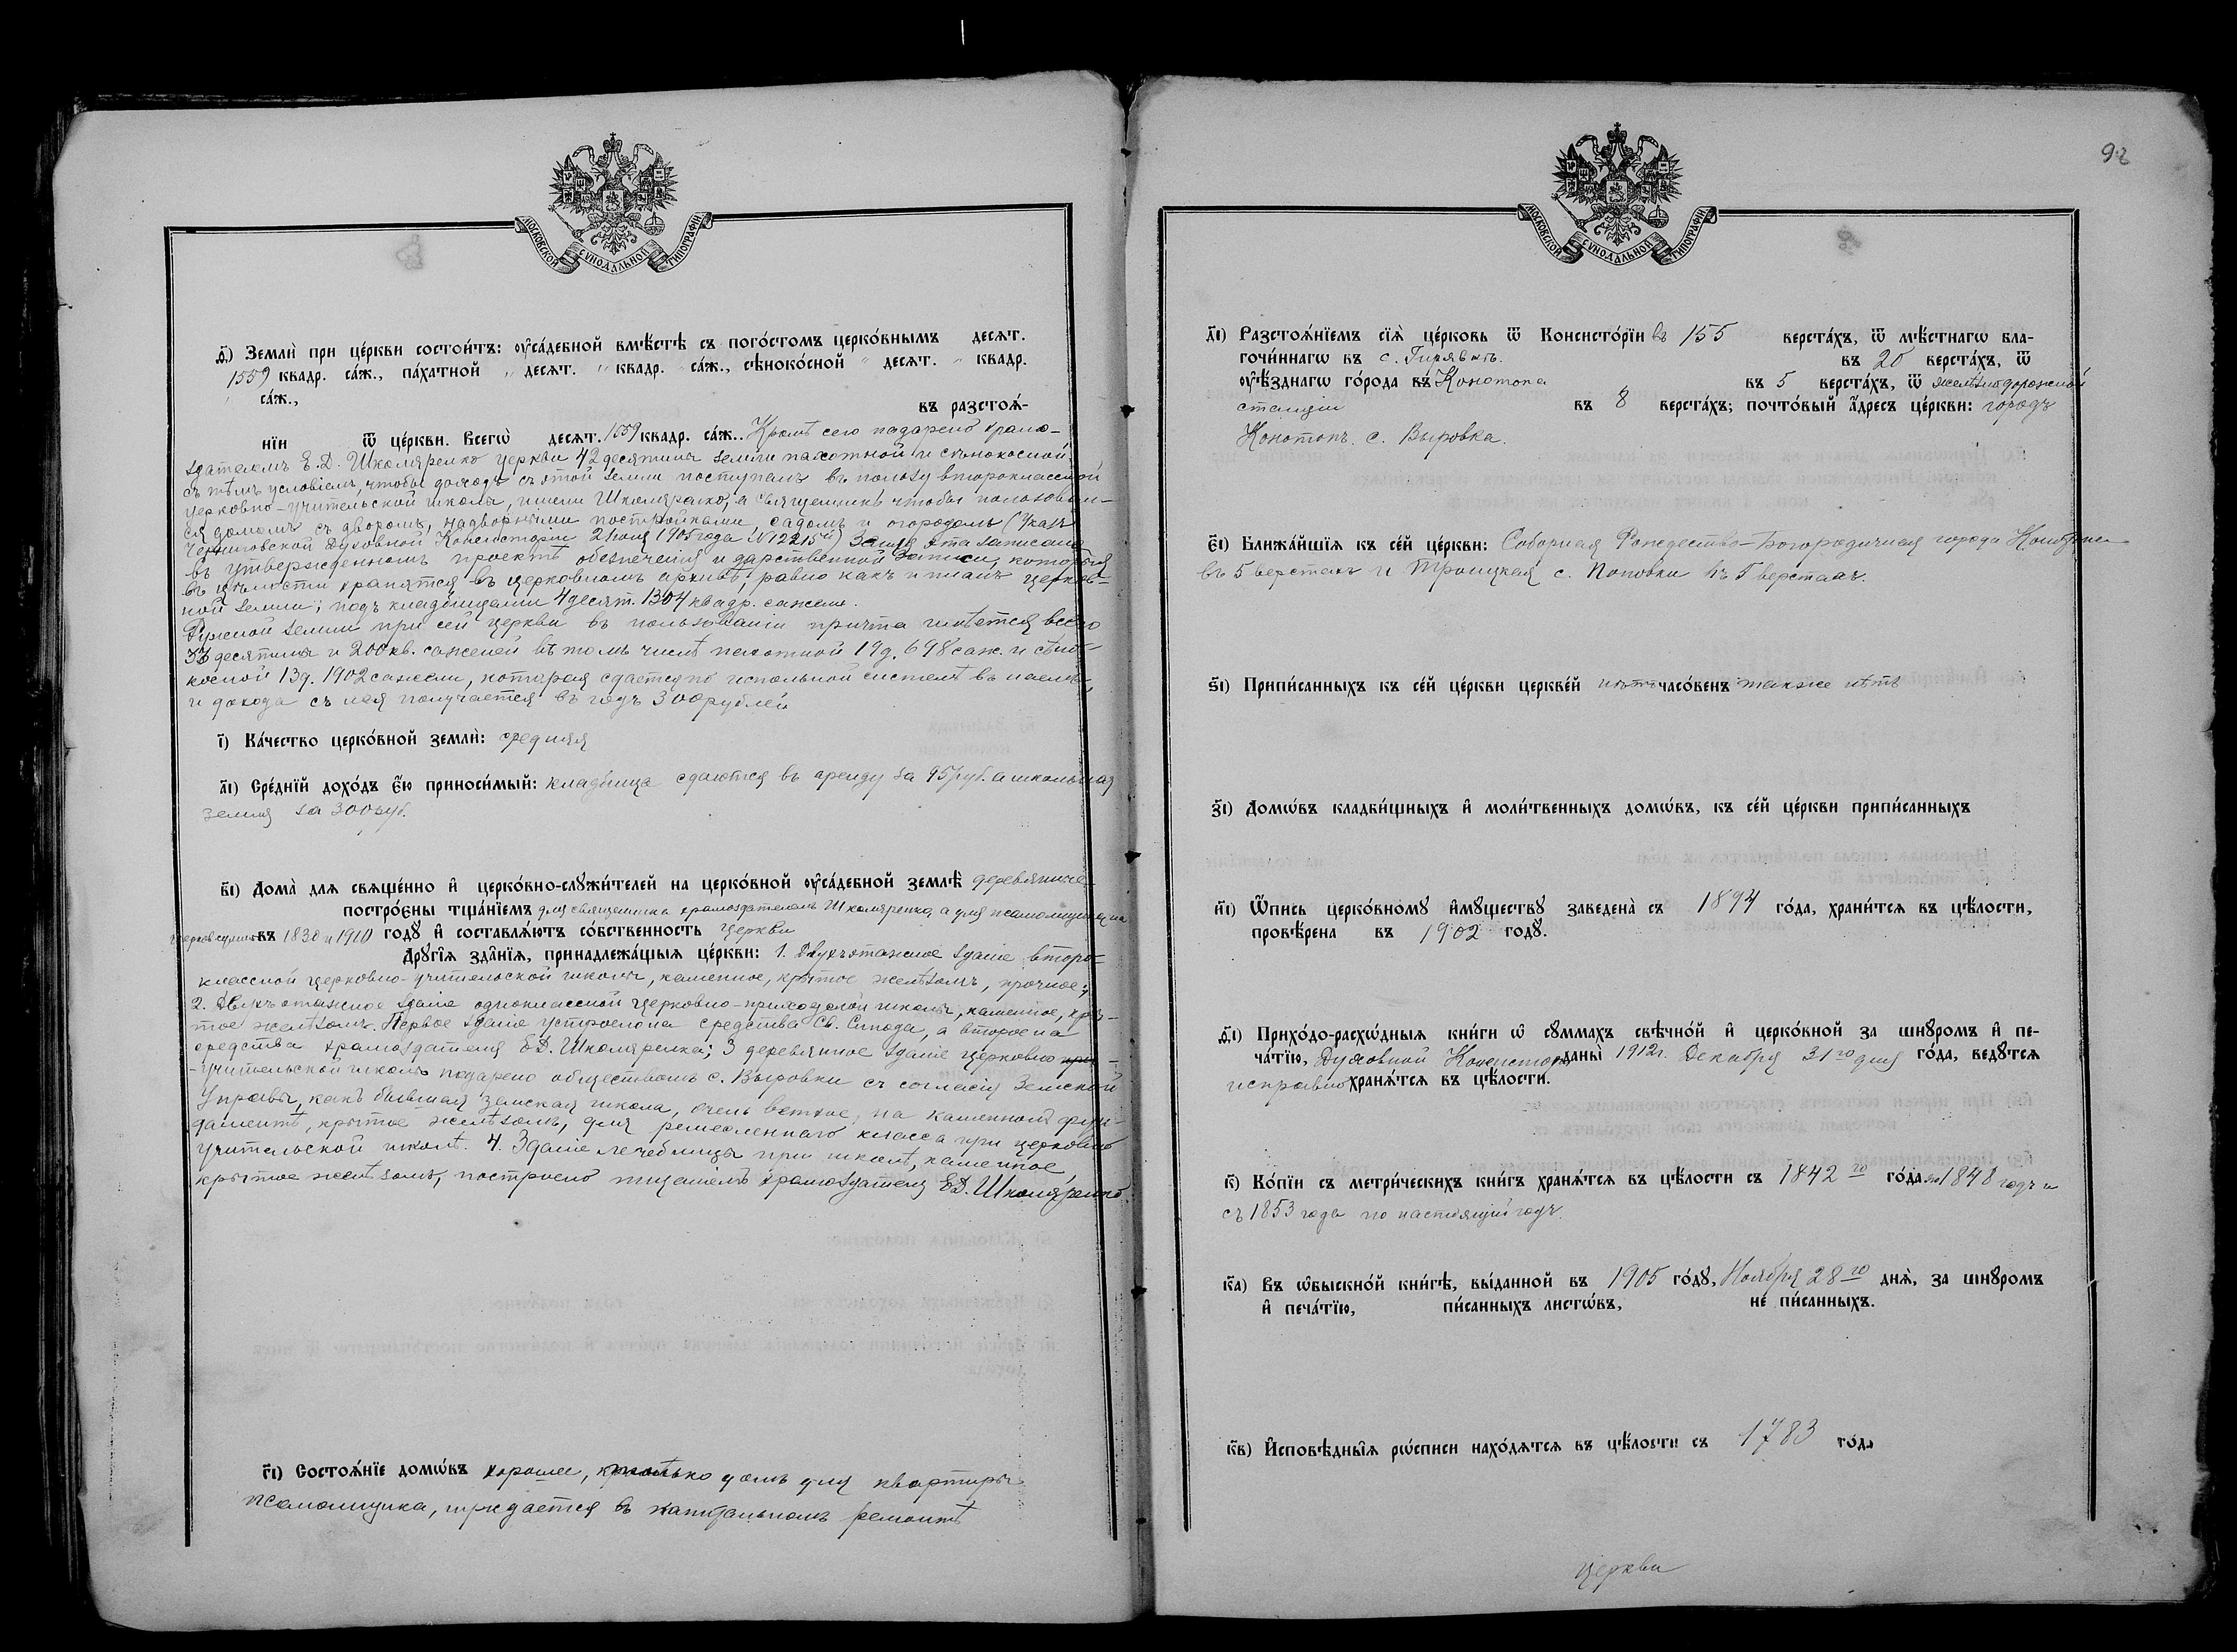 МОСКОВСКОЙ СѴНОДАЛЬНОЙ ТИПОГРАФІИ
ѳ҃) Землѝ при це́ркви состои́тъ: ᲂу҆са́дебной вмѣ́стѣ съ пого́стомъ церко́внымъ десѧт.
1559 квадр. са́ж., па́хатной " десѧт. " квадр. са́ж., сѣноко́сной " десѧт. " квадр.
" са́ж., въ разстоѧ́-
нїи ѿ це́ркви. Всегѡ̀ десѧт. 1559 квадр. са́ж.. Кромѣ сего подарено храмо-
здателемъ Е.Д. Шкляренко церкви 42 десятины земли пахотной и сѣнокосной
съ тѣмъ условіемъ, чтобы доходъ съ этой земли поступалъ въ пользу второклассной
церковно-учительской школы, имени Шкляренко, а священникъ чтобы пользовал-
ся домомъ съ дворомъ, надворными постройками, садомъ и огородомъ (Указъ
Черниговской Духовной Консисторіи 2 1905 года № 12215й) Земля эта записана
въ утвержденномъ проектѣ обезпеченія и дарственной записи, которыя
въ цѣлости хранятся въ церковномъ архивѣ, равно какъ и планъ церков-
ной земли; подъ кладбищами 4 десят. 1304 квадр. сажени.
Ружной земли при сей церкви въ пользованіи причта имѣется всего
33 десятины и 200 кв. саженей въ томъ числѣ пахотной 19 д. 698 саж. и сѣно-
косной 13 д. 1902 сажени, которая сдается по испольной системѣ въ наемъ,
и дохода съ нея получается въ годъ 300 рублей
і҃) Ка́чество церко́вной землѝ: средняя
а҃і) Сре́днїй дохо́дъ є҆́ю приноси́мый: кладбища сдаются въ аренду за 95 руб. а школьная
земля за 300 руб.
в҃і) Дома̀ для свѧще́нно и҆ церко́вно-слꙋжи́телей на церко́вной ᲂу҆са́дебной землѣ̀ деревянные
постро́єны тща́нїемъ для священника храмоздателемъ Шкляренко, а для псаломщика на
церков. суммы въ 1830 и 1910 годꙋ̀ и҆ составлѧ́ютъ со́бственность церкви
Дрꙋгі̑ѧ зда̑нїѧ, принадлежа́щыѧ це́ркви: 1. Двухъэтажное зданіе второ-
классной церковно-учительской школы, каменное, крытое желѣзомъ, прочное;
2. Двухъэтажное зданіе одноклассной церковно-приходской школы, каменное, кры-
тое желѣзомъ. Первое зданіе устроено на средства Св. Синода, а второе на
средства храмоздателя Е.Д. Шкляренка; 3 деревянное зданіе церковно при-
-учительской школы подарено обществомъ с. Выровки съ согласія Земской
Управы, какъ бывшая Земская школа, очень ветхое, на каменномъ фун-
даментѣ, крытое желѣзомъ, для ремесленнаго класса при церковно
учительской школѣ. 4. Зданіе лечебницы при школѣ, каменное,
крытое желѣзомъ, построено тщаніемъ храмоздателя Е.Д. Шкляренко
г҃і) Состоѧ́нїе домѡ́въ хорошее, только домъ для квартиры
псаломщика, нуждается въ капитальномъ ремонтѣ
92
МОСКОВСКОЙ СѴНОДАЛЬНОЙ ТИПОГРАФІИ
д҃і) Разстоѧ́нїемъ сїѧ̀ це́рковь ѿ Консисто́рїи въ 155 верста́хъ, ѿ мѣ́стнагѡ бла-
гочи́ннагѡ въ с. Гирявкѣ. въ 20 верста́хъ, ѿ
ᲂу҆ѣ́зднагѡ го́рода въ Конотопа въ 5 верста́хъ, ѿ желѣзнодорожной
станціи въ 8 верста́хъ; почто́вый а҆́дресъ це́ркви: городъ
Конотопъ. с. Выровка.
є҃і) Ближа́йшїѧ къ се́й це́ркви: Соборная Рождество-Богородичная города Конотопа
въ 5 верстахъ и Троицкая с. Поповки въ 5 верстахъ.
ѕ҃і) Припи́санныхъ къ се́й це́ркви церкве́й нѣтъ часо́венъ также нѣтъ
з҃і) Домѡ́въ кладби́щныхъ и҆ моли́твенныхъ домѡ́въ, къ се́й це́ркви припи́санныхъ
и҃і) Ѻ҆́пись церко́вномꙋ и҆мꙋ́ществꙋ заведена̀ съ 1894 го́да, храни́тсѧ въ цѣ́лости,
провѣ́рена въ 1902 годꙋ̀.
ѳ҃і) Прихо́до-расхѡ́дныѧ кни́ги ѡ҆ сꙋ́ммахъ свѣчно́й и҆ церко́вной за шнꙋро́мъ и҆ пе-
ча́тїю, Духовной Консисторіи даны̀ 1912 г. Декабря 31го дня го́да, ведꙋ́тсѧ
исправно хранѧ́тсѧ въ цѣ́лости.
к҃) Ко́пїи съ метри́ческихъ кни́гъ хранѧ́тсѧ въ цѣ́лости съ 1842го го́да по 1848 годъ и
съ 1853 года по настоящій годъ.
к҃а) Въ ѡ҆быскно́й кни́гѣ, вы́данной въ 1905 го́дꙋ, Ноября 28го днѧ̀, за шнꙋро́мъ
и҆ печа́тїю, пи́санныхъ листѡ́въ, не пи́санныхъ.
к҃в) И҆сповѣ́дныѧ рѡ́списи нахо́дѧтсѧ въ цѣ́лости съ 1783 го́да
церкви